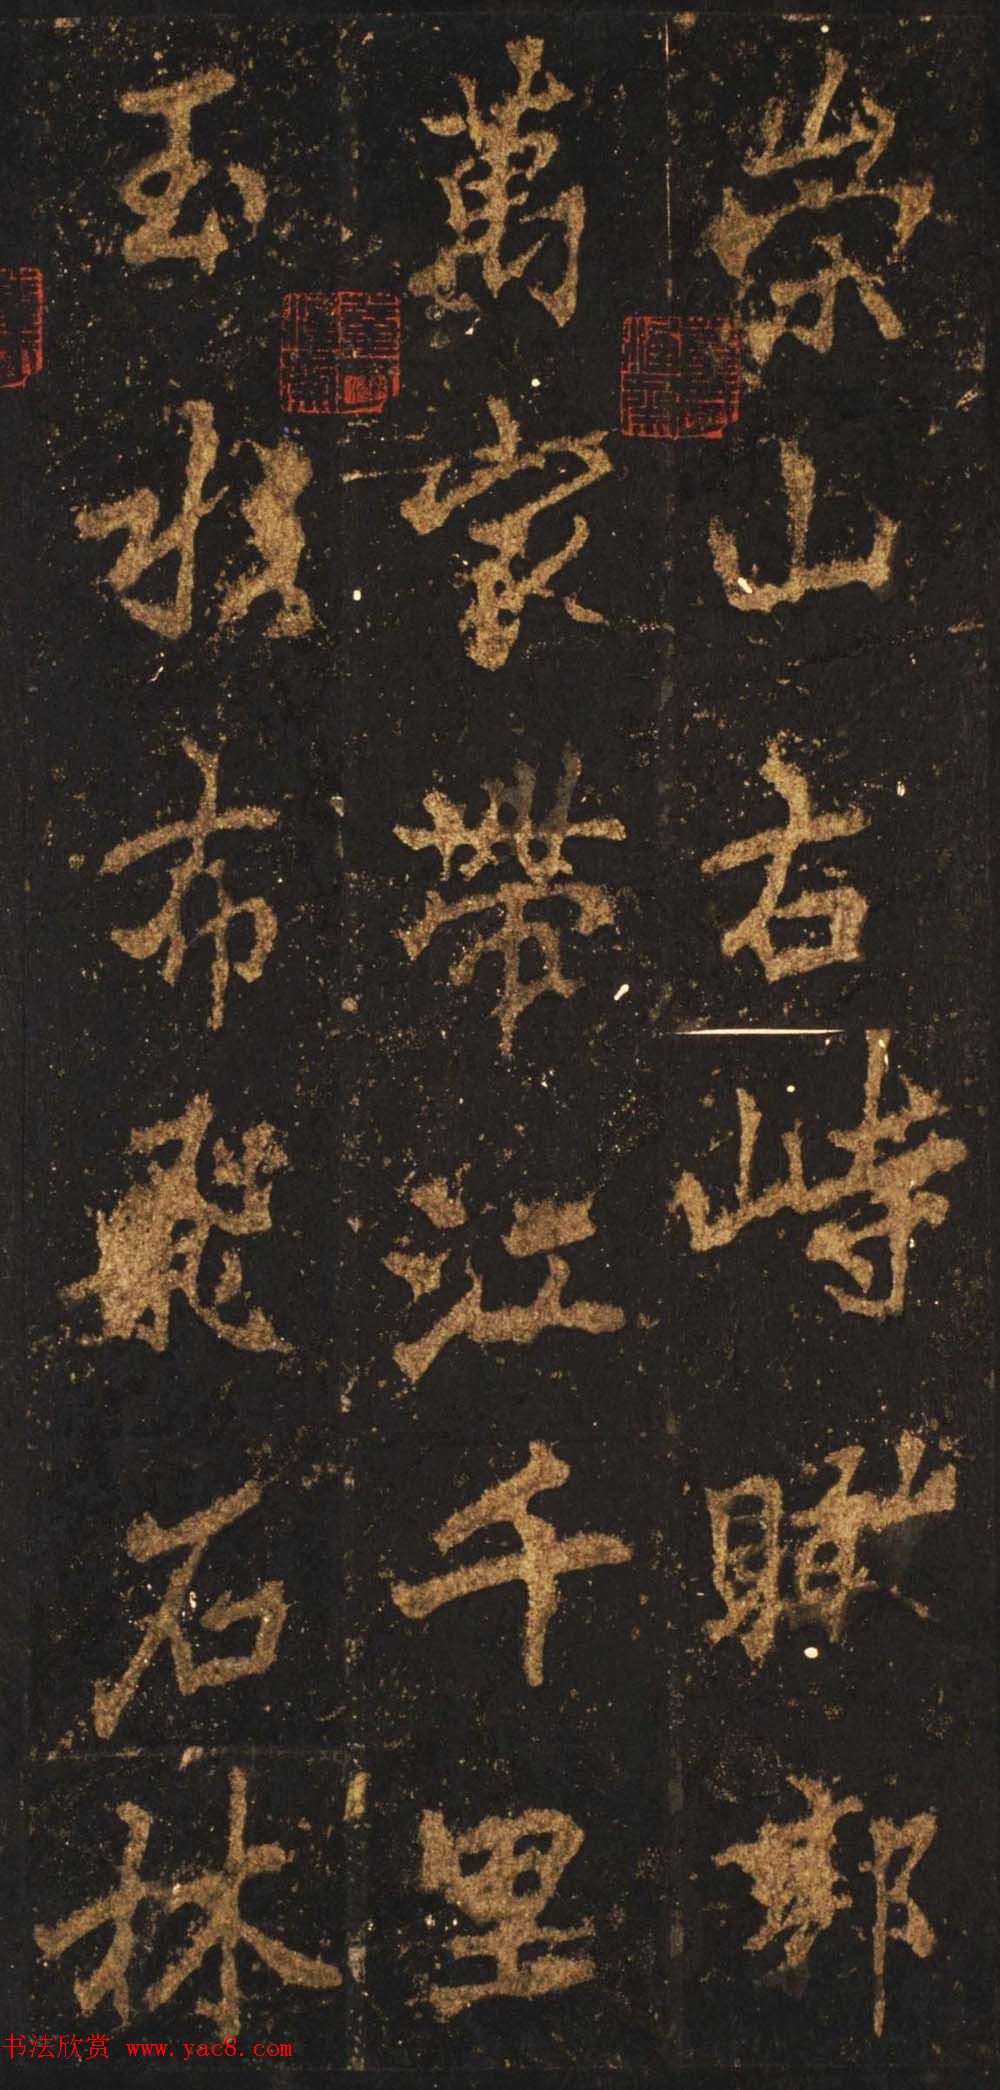 崇山右峙瞰郛
萬家帶江千里
玉水布飛石林
书法欣赏 www.yac8.com